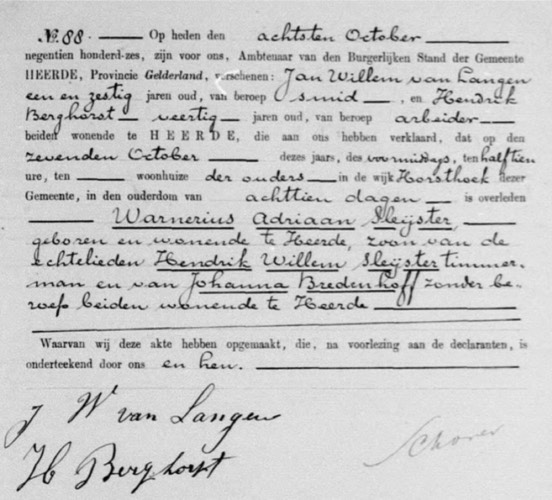 No. 88. Op heden den achtsten October
negentien honderd-zes, zijn voor ons, Ambtenaar van den Burgerlijken Stand der Gemeente
HEERDE, Provincie Gelderland, verschenen: Jan Willem van Langen
een en zestig jaren oud, van beroep smid, en Hendrik
Berghorst veertig jaren oud, van beroep arbeider
beiden wonende te HEERDE, die aan ons hebben verklaard, dat op den
zevenden October dezes jaars, des voormiddags, ten half tien
ure, ten woonhuize der ouders in de wijk Horsthoek dezer
Gemeente, in den ouderdom van achttien dagen is overleden
Warnerius Adriaan Sleijster,
geboren en wonende te Heerde, zoon van de
echtelieden Hendrik Willem Sleijster timmer-
man en van Johanna Bredenhoff zonder be-
roep beiden wonende te Heerde
Waarvan wij deze akte hebben opgemaakt, die, na voorlezing aan de declaranten, is
onderteekend door ons en hen.
J W van Langen
H Berghorst